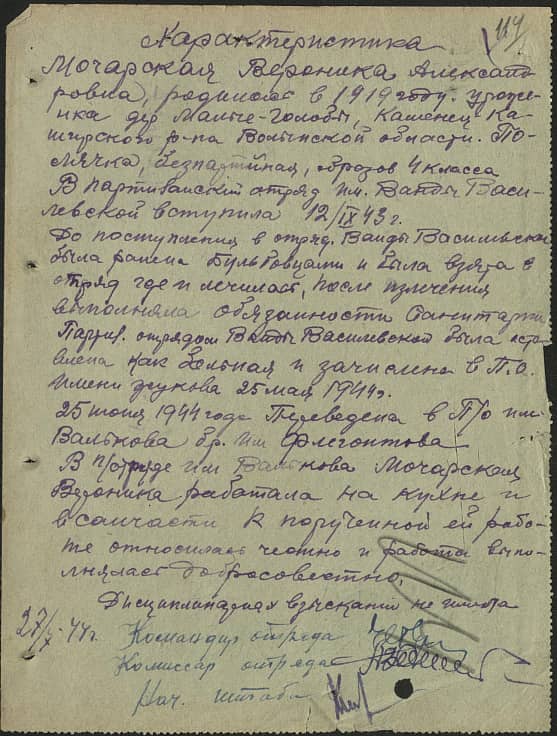 117
Характеристика
Мочарская Вероника Александ
ровна, родилась в 1919 году. уроже-
нка дер Малые-Голобы, Каменец Ка-
ширского р-на Волынской области. По-
лячка, безпартийная, образов 4 класса
В партизанский отряд им. Ванды Васи-
левской вступила 12/IX 43 г.
До поступления в отряд, Ванды Васильевской
была ранена Бульбовцами и была взята в
отряд где и лечилась, после излечения
выполняла обязанности санитарки
Партиз. отрядом Ванды Василевской была оста
влена как больная и зачислена в П.О.
имени Жукова 25 мая 1944 г.
25 июня 1944 года Переведена в П/О им.
Валькова бр. им Флегонтова
В п/отряде им Валькова Мочарская
Вероника работала на кухне и
в санчасти К порученной ей рабо-
те относилась честно и работа выпо-
лнялась добросовестно.
Дисциплинарных взысканий не имела
27/X-44 г.
Командир отряда
Комиссар отряда
Нач. штаба